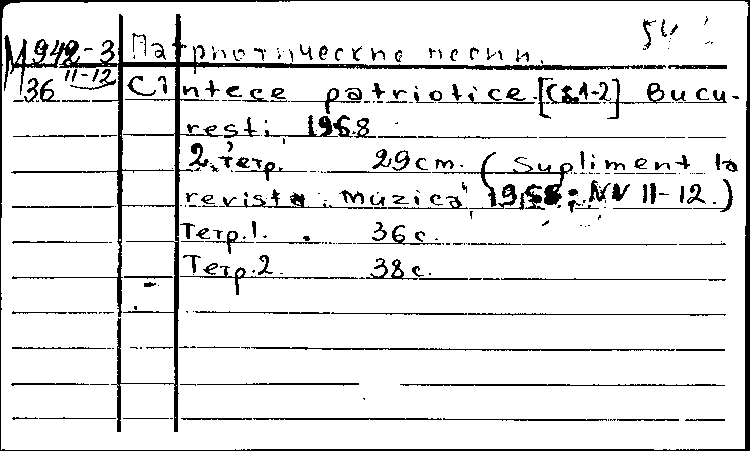 M 942-3 Патриотические песни.
36 11-12 Cîntece patriotice. [C&1-2] Bucu-
resti, 1968
2. тетр. 29 cm. (Supliment la
revista "Muzica", 1968: NN 11-12.)
Тетр.1. 36 c.
Тетр.2. 38 c.